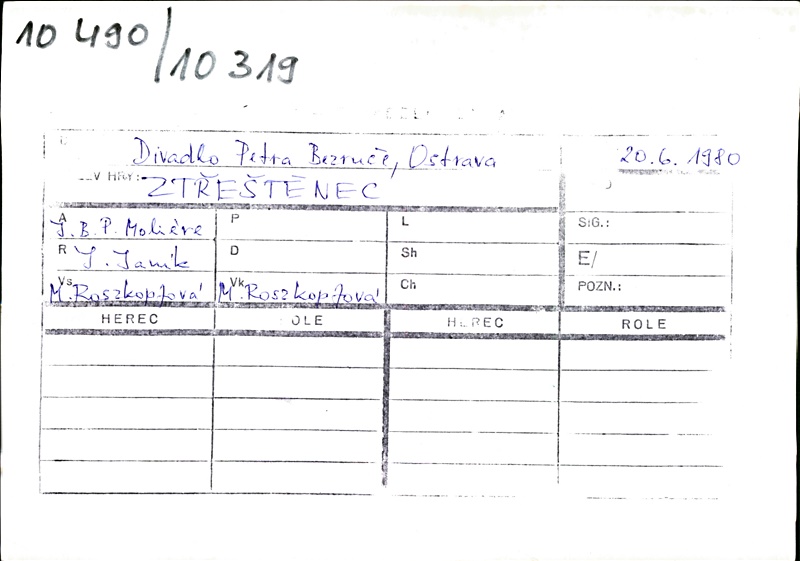 10 490/10 319
Divadlo Petra Bezruče, Ostrava 20.6.1980
ZTŘEŠTĚNEC
A J.B.P. Molière P L SIG.:
R J. Janík D Sh E/
Vs M. Roszkopfová Vk M. Roszkopfová Ch POZN.:
HEREC OLE HEREC ROLE